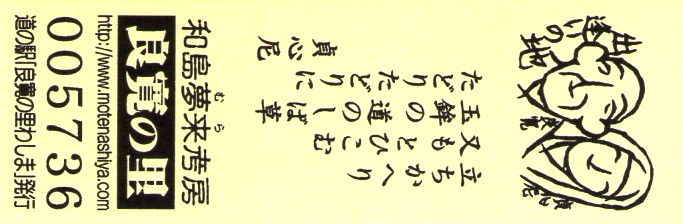 出逢いの地
良寛
貞心尼
立ちかへり
又もとひこむ
玉鉾の道のしば草
たどりたどりに
貞心尼
むら
和島夢来考房
良寛の里
http://www.motenashiya.com
005736
道の駅「良寛の里わしま」発行